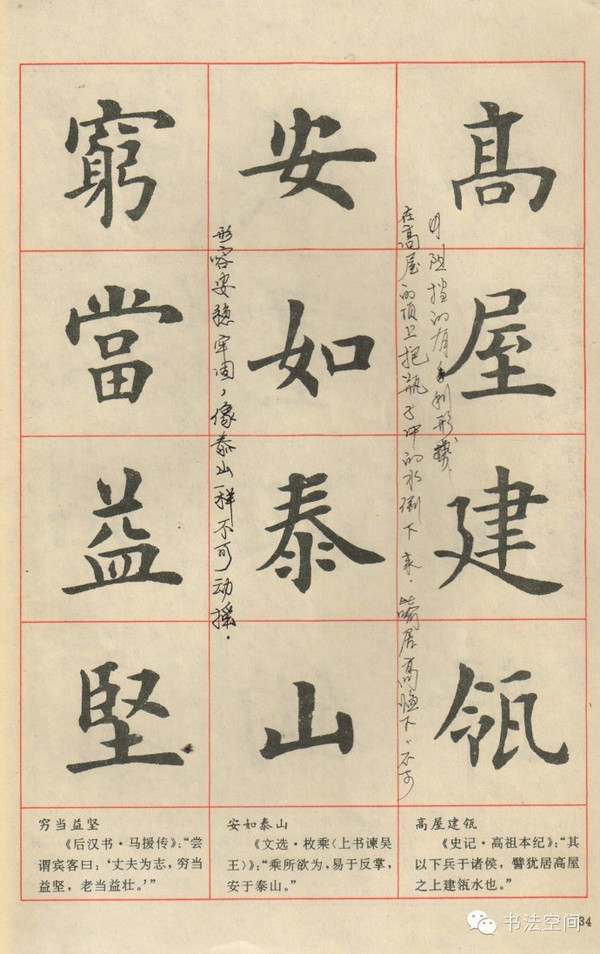 高屋建瓴
安如泰山
窮當益堅
在高屋的顶上把瓶子中的水倒下来.喻居高临下,不可
阻挡的有利形势
形容安稳牢固,像泰山一样不可动摇.
高屋建瓴
《史记·高祖本纪》:“其
以下兵于诸侯,譬犹居高屋
之上建瓴水也。”
安如泰山
《文选·枚乘〈上书谏吴
王〉》:“乘所欲为,易于反掌,
安于泰山。”
穷当益坚
《后汉书·马援传》:“尝
谓宾客曰:‘丈夫为志,穷当
益坚,老当益壮。’”
书法空间
34